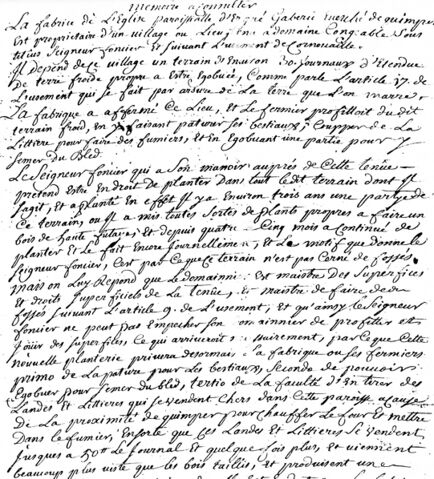 memoire a consulter
La fabrice de L'Eglise paroissialle d'Ergué Gaberic Eveché de quimper
Est proprietaire d'un village ou Lieu, tenu a domaine Congeable sous
Seigneur foncier Et suivant L'usement de Cornouaille.
Il depend de ce village un terrain d'Environ 30 journaux d'Etendue
de terre froide propre a Entre Egobuée, Comme parle L'article 17. de
L'usement qui se fait par arsure de La terre que L'on marre.
La fabrique a affermé Ce Lieu, et Le fermier profittoit du dit
terrain froid, En y faisant paturer ses bestiaux, Coupper de La
Littiere pour faire des fumiers, et En Egobuant une partie pour y
semer du Bled.
Le Seigneur foncier qui a Son manoir auprés de Cette tenüe
pretend Estre En Droit De planter Dans tout Ledit terrain dont Il
sagit, et a planté En effet Il y a Environ trois ans une partye de
Ce terrain, ou Il a mis toutes sortes de plants propres a faire un
bois de haute futaye, et depuis quatre Cinq mois a Continué de
planter Et Le fait Encore journellement, et Le motif que donne Le
Seigneur foncier, C'est par Ce que Ce terrain n'est pas Cerné de fossés
mais on Luy Repond que Le domainier Est maistre Des Superfices
et droits superficiels de La tenüe, et maistre de faire de
fossé suivant L'article 9. de L'usement, et qu'ainsy Le Seigneur
foncier ne peut pas Empecher Son domainier de profiter et
jouir des superfices Ce qui arriveroit parce que Cette
nouvelle planterie privera desormais La fabrique ou ses fermiers
primo de La pature pour Les bestiaux, Secondo de pouvoir
Egobuer pour semer du Bled, tertio de La faculté d'En tirer des
Landes Et Littieres qui se vendent Chers dans Cette paroisse a Cause
de La proximité de quimper pour Chauffer Le four Et mettre
Dans Le fumier, Ensorte que Ces Landes et Littieres Se vendent
jusques a 50tt Le journal Et quelque fois plus, et viennent
beaucoup plus viste que Les bois taillis, et produisent une